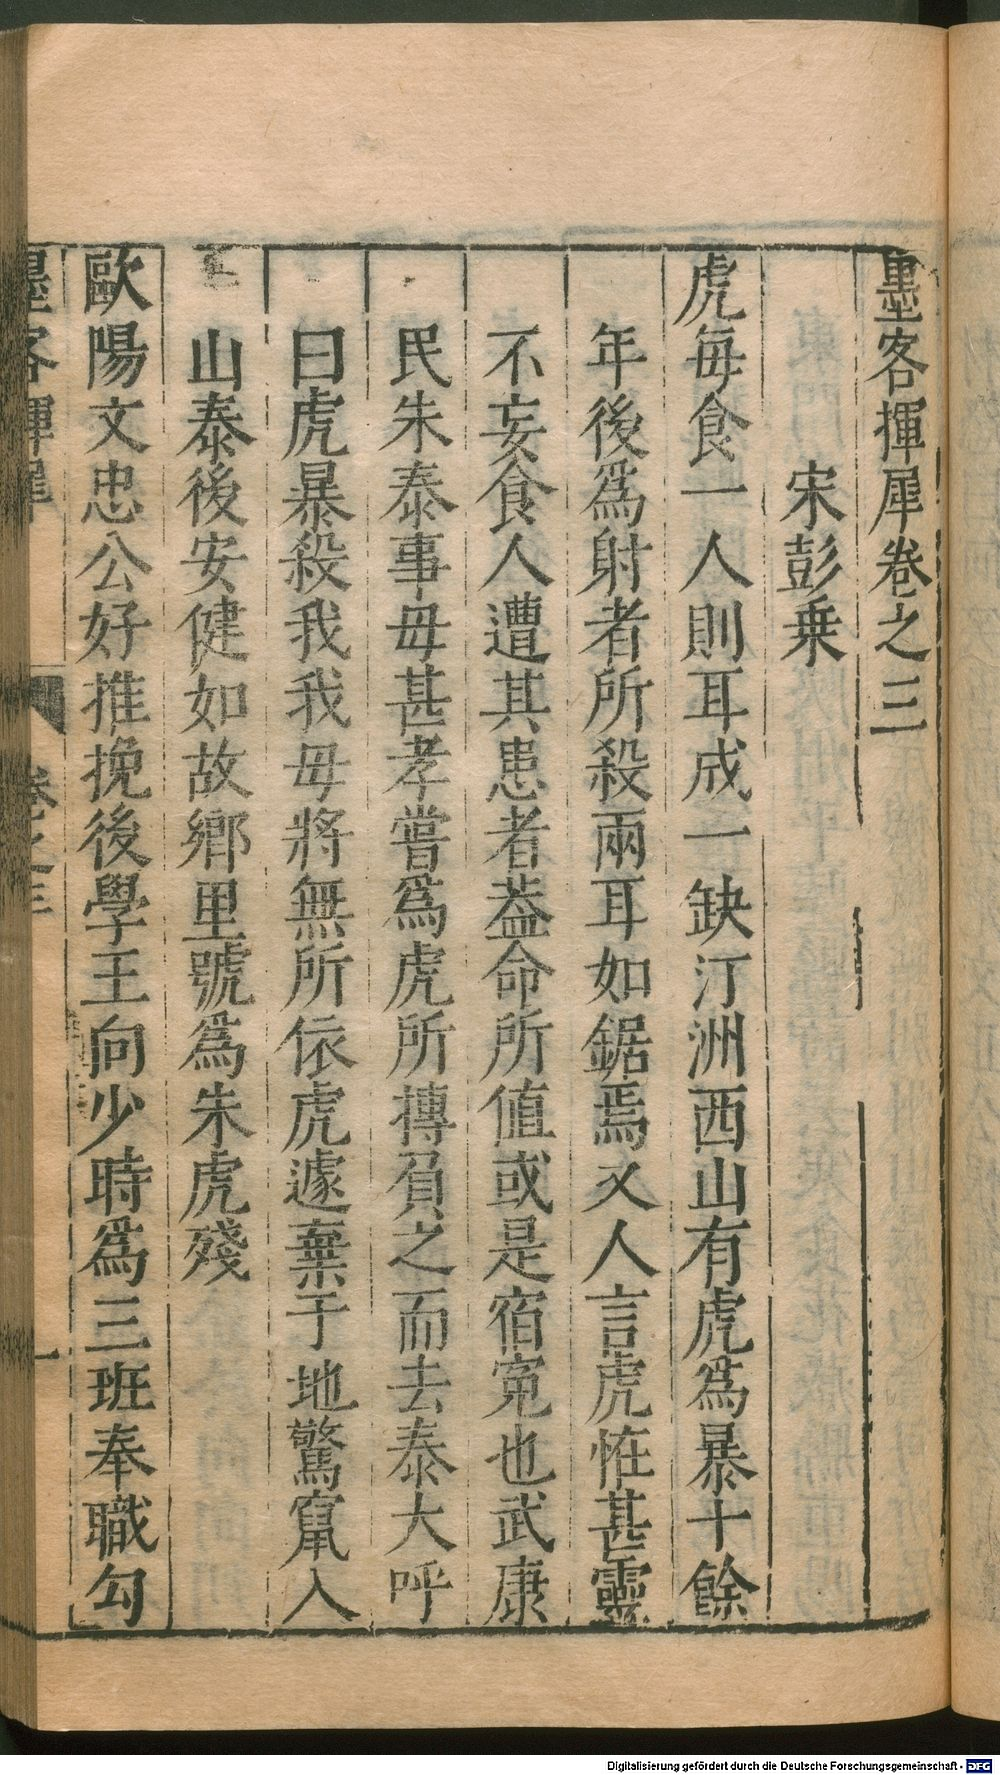 墨客揮犀卷之三
宋彭乗
虎每食一人則耳成一缺汀洲西山有虎爲暴十餘
年後爲射者所殺兩耳如鋸焉又人言虎恠甚靈
不妄食人遭其患者葢命所值或是宿寃也武康
民朱泰事母甚孝嘗爲虎所摶負之而去泰大呼
曰虎暴殺我我母將無所依虎遽棄于地驚竄入
山泰後安健如故鄉里號爲朱虎殘
歐陽文忠公好推挽後學王向少時爲三班奉職勾
墨客揮犀 卷之三 一
Digitalisierung gefördert durch die Deutsche Forschungsgemeinschaft - DFG